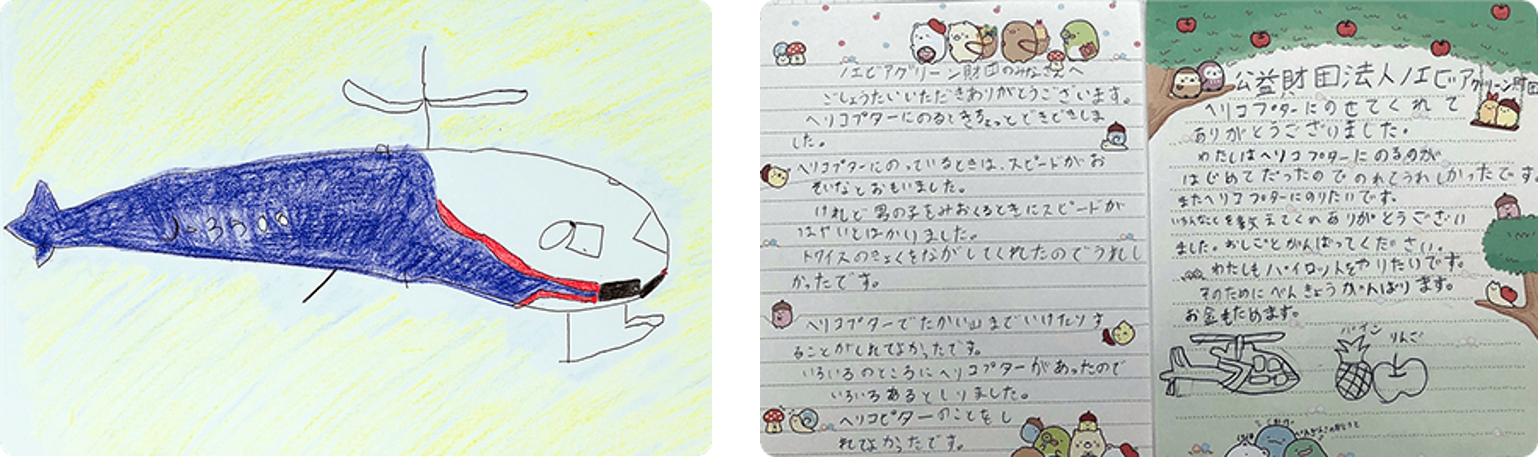 J-3300
ノエビアグリーン財団のみなさんへ
ごしょうたいいただきありがとうございます。
ヘリコプターにのるときちょっとどきどきしま
した。
ヘリコプターにのっているときは、スピードがお
そいなとおもいました。
けれど男の子をみおくるときにスピードが
はやいとはかりました。
トワイスのきょくをながしてくれたのでうれし
かったです。
ヘリコプターでたかい山までいけたりす
ることがしれてよかったです。
いろいろのところにヘリコプターがあったので
いろいろあるとしりました。
ヘリコピターのことをし
れてよかったです。
公益財団法人ノエビアグリーン財団
ヘリコプターにのせてくれて
ありがとうございました。
わたしはヘリコプターにのるのが
はじめてだったのでのれてうれしかったです。
またヘリコプターにのりたいです。
いろんなことを教えてくれありがとうござい
ました。おしごとがんばってください。
わたしもパイロットをやりたいです。
そのためにべんきょうがんばります。
お金もためます。
パイン
りんご